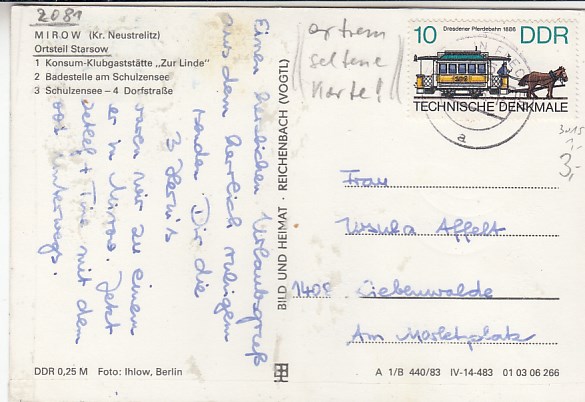 2081
MIROW (Kr. Neustrelitz)
Ortsteil Starsow
1 Konsum-Klubgaststätte „Zur Linde"
2 Badestelle am Schulzensee
3 Schulzensee – 4 Dorfstraße
Einen herzlichen Urlaubsgruß
aus dem herrlich ruhigem
senden Dir die
3
waren wir zu einem
er in Mirow. Jetzt
+ Tine mit dem
unterwegs.
BILD UND HEIMAT · REICHENBACH (VOGTL)
extrem
seltene
Karte!
10 Dresdener Pferdebahn 1886 DDR
TECHNISCHE DENKMALE
a
3,-
Frau
Ursula Affelt
1408 Liebenwalde
Am Marktplatz
DDR 0,25 M Foto: Ihlow, Berlin
A 1/B 440/83 IV-14-483 01 03 06 266